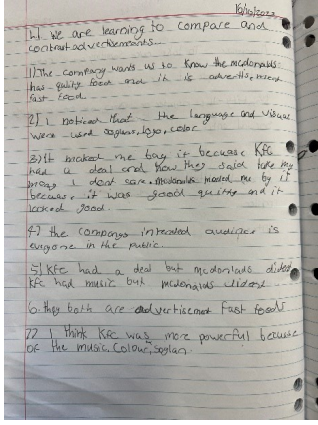 16/10/2023
L1. We are learning to compare and
contrast advertisements.
1) The company wants us to know the mcdonalds
has quility food and it is advertis
fast food
2) I noticed that the language and visual
were used soglans, logo, color
3) It maked me bay it becuase KFC
had a deal and how they said take my
money I dont care. Mcdonalds maded me by it
becuase it was good quilty and it
looked good.
4) the companys intended audince is
evryone in the public.
5) Kfc had a deal but mcdonlads dident
Kfc had music but mcdonalds dident
6. they both are advertisment fast foods
7) I think KFC was more powerful becuase
of the music, Colour, soglan.